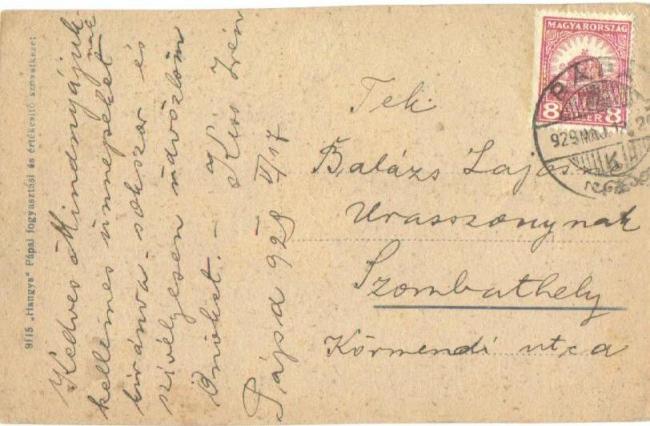 9115 „Hangya" Pápai fogyasztási és értékesítő szövetkezet
Kedves Mindnyájuk-
nak
kellemes ünnepeket
kívánva sokszor és
szívélyesen üdvözlöm
Önöket. – Kiss Irén
Pápa 928 V/17
MAGYARORSZÁG
8 8
PÁPA
929 MÁJ. 17.
Tek.
Balázs Lajos
Urasszonynak
Szombathely
Körmendi utca